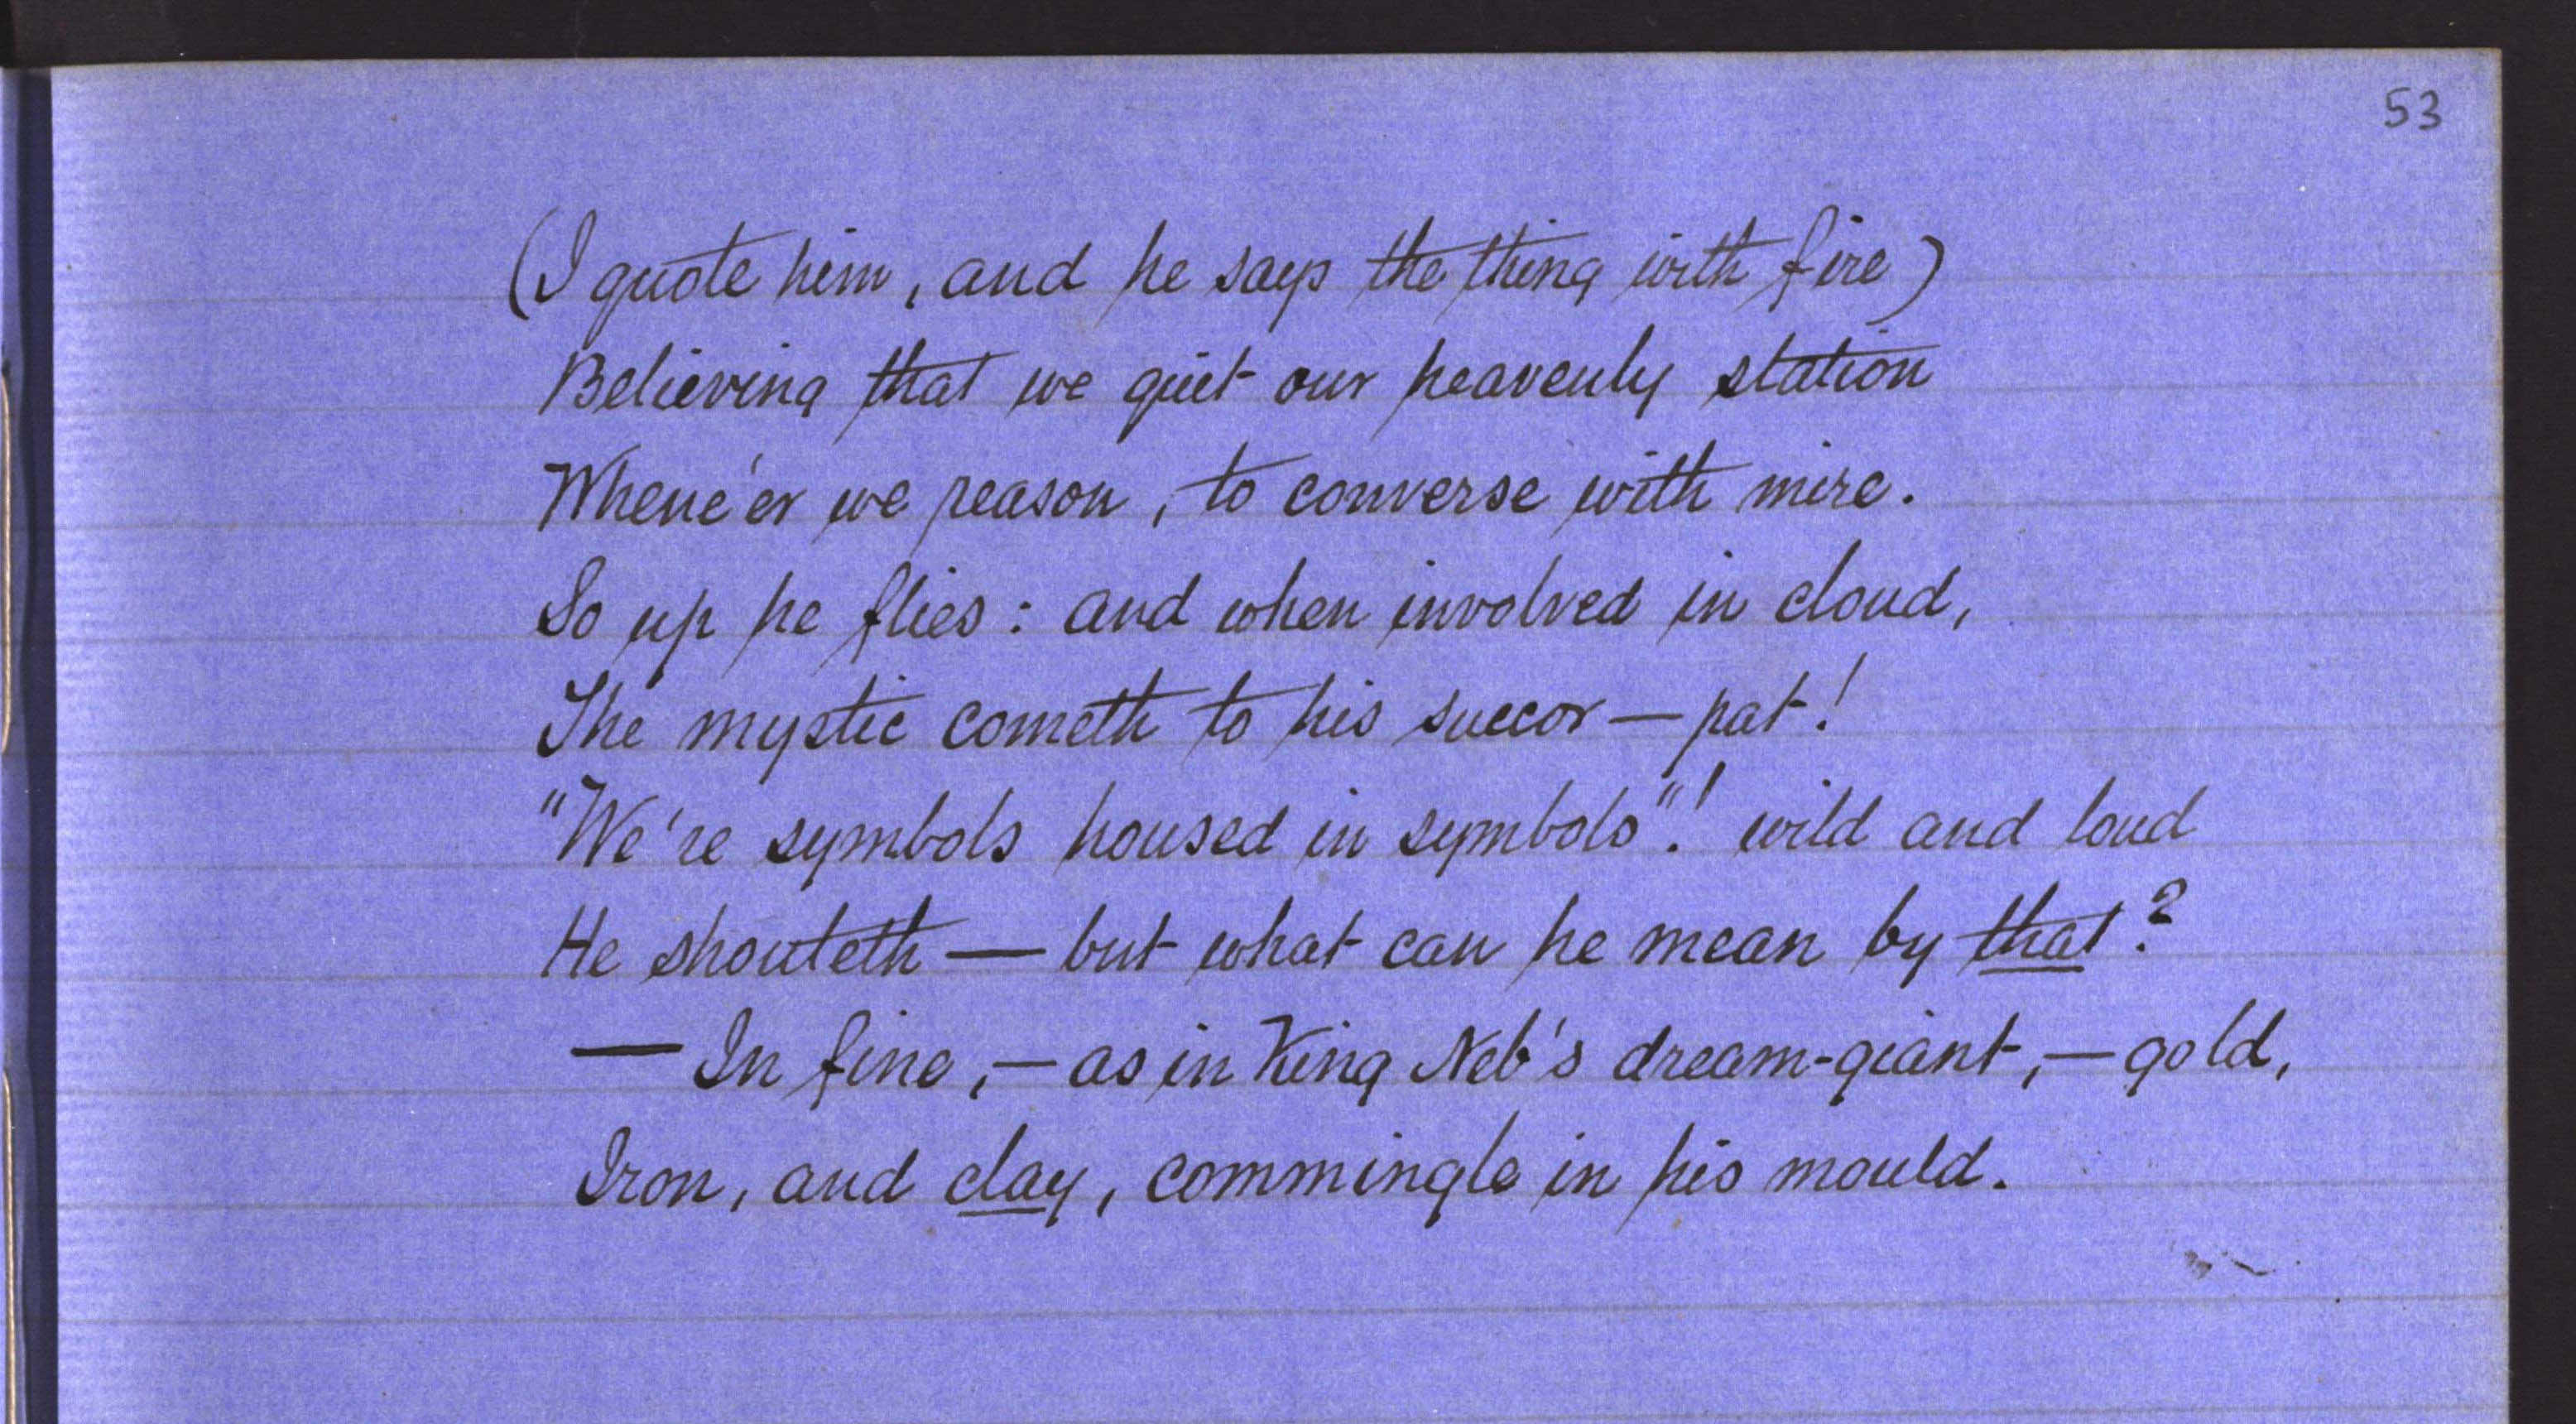 53
(I quote him, and he says the thing with fire)
Believing that we quit our heavenly station
Whene'er we reason, to converse with mire.
So up he flies: and when involved in cloud,
The mystic cometh to his succor — pat!
"We're symbols housed in symbols"! wild and loud
He shouteth — but what can he mean by that?
— In fine, — as in King Neb's dream-giant, — gold,
Iron, and clay, commingle in his mould.